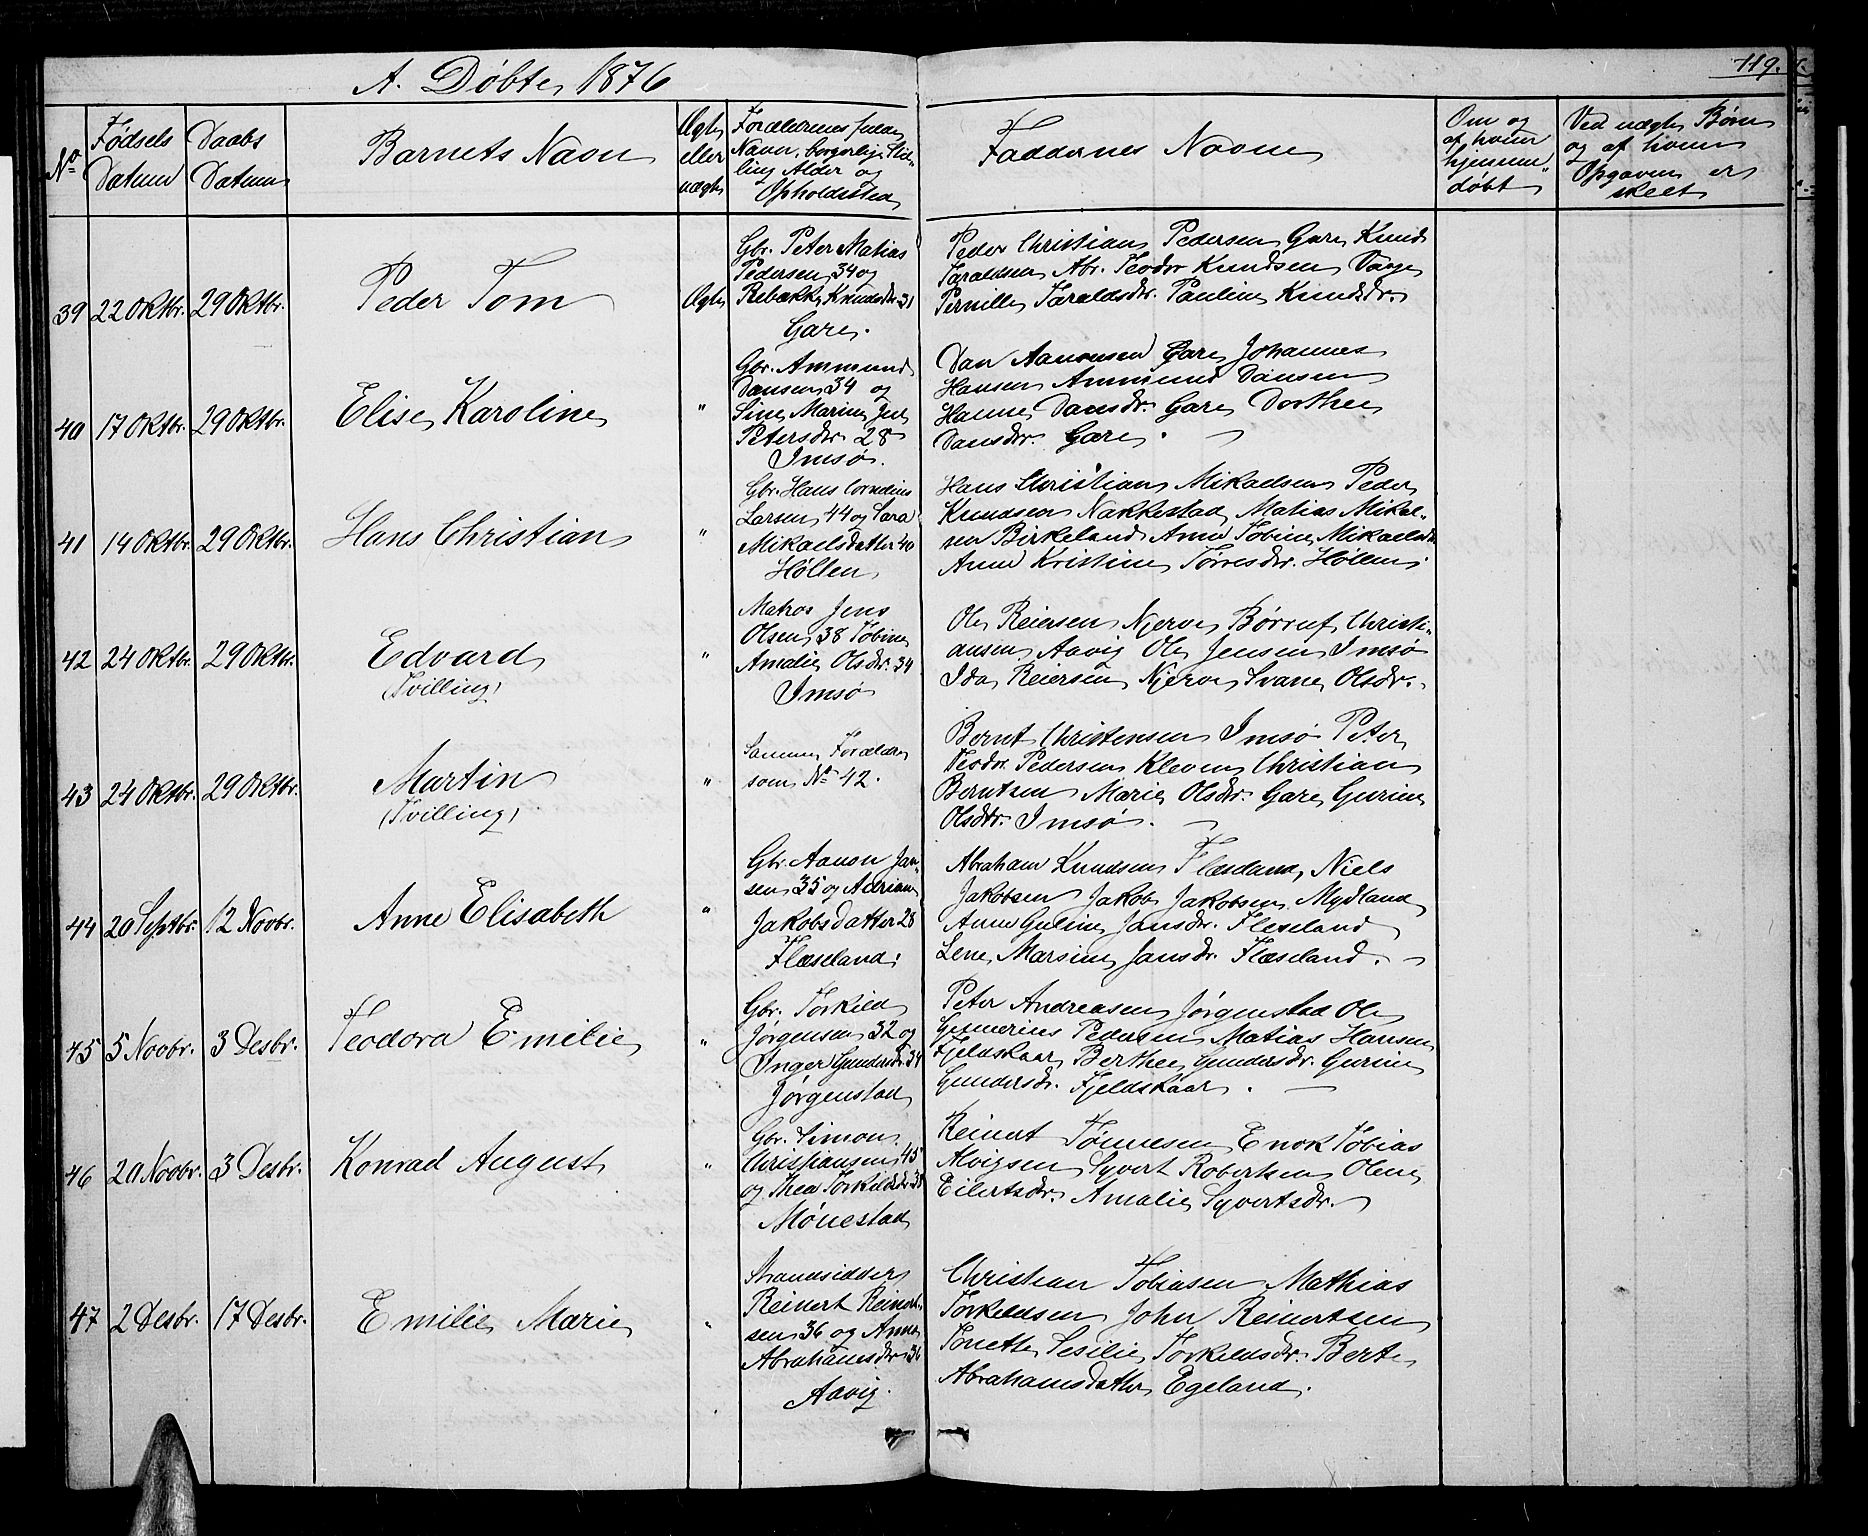 A. Døbte 1876
119.
No
Fødsels Datum
Daabs Datum
Barnets Navn
Ægte eller uægte
Forældrenes fulde Navn, borgerlige Stilling Alder og Opholdssted
Faddernes Navne
Om og af hvem hjemmedøbt
Ved uægte Børn og af hvem Opgaven er skeet
39 22 Oktbr. 29 Oktbr. Peder Tom Ægte
Gbr. Peter Matias
Pedersen 34 og
Rebækka Knudsdr. 31
Gare.
Peder Christian Pedersen Gare Knud
Taraldsen Abr. Teodor Knudsen Vaage
Pernille Taraldsdr. Pauline Knudsdr.
40 17 Oktbr. 29 Oktbr. Elise Karoline "
Gbr. Ammund
Dansen 34 og
Sine Marine Jen
Petersdr 28
Imsø.
Dan Aanensen Gare Johannes
Hansen Ammund Dansen
Hanne Dansdr. Gare Dorthea
Dansdr. Gare.
41 14 Oktbr. 29 Oktbr. Hans Christian "
Gbr. Hans Cornelius
Larsen 44 og Sara
Mikaelsdatter 40
Høllen
Hans Christian Mikaelsen Peder
Knudsen Nakkestad Matias Mikal-
sen Birkeland Anne Tobine Mikaelsdr.
Anne Kristine Tørresdr. Høllen.
42 24 Oktbr. 29 Oktbr. Edvard "
(Tvilling)
Matros Jens
Olsen 38 Tobine
Amalie Olsdr. 34
Imsø
Ole Reiersen Njerve Børruf Christi-
ansen Aavig Ole Jensen Imsø
Ida Reiersen Njerve Svane Olsdr.
43 24 Oktbr. 29 Oktbr. Martin "
(Tvilling)
Samme Forældre
som No 42.
Bernt Christensen Imsø Peter
Teodor Pedersen Kleven Christian
Berntsen Marie Olsdtr. Gare Gurine
Olsdtr. Imsø.
44 20 Septbr. 12 Novbr. Anne Elisabeth "
Gbr. Aanon Jan-
sen 35 og Adriane
Jakobsdatter 28
Flæseland.
Abraham Knudsen Flæsland, Niels
Jakobsen Jakob Jakobsen Mydland
Anne Guline Jansdr. Fleseland
Lene Marsine Jansdr. Flæseland.
45 5 Novbr. 3 Desbr. Teodora Emilie "
Gbr. Torkild
Jørgensen 32 og
Inger Gundersdr. 34
Jørgenstad
Peter Andreasen Jørgenstad Ole
Pedersen Matias Hansen
Fjeldskaar Berthe Gundersdr. Gurine
Gundersdr. Fjeldskaar.
46 20 Novbr. 3 Desbr. Konrad August "
Gbr. Simon
Christiansen 45
og Thea Torkildsdr 38
Mønestad
Reinert Tønnesen Enok Tobias
Alvigsen Syvert Robertsen Olene
Eilertsdr. Amalie Syvertsdr.
47 2 Desbr. 17 Desbr. Emilie Marie "
Strandsidder
Reinert Reinert-
sen 36 og Anne
Abrahamsdr 36
Aavig.
Christian Tobiasen Mathias
Torkeldsen John Reinertsen
Tonette Sesilie Torkeldsdr. Berte
Abrahamsdatter Egeland.